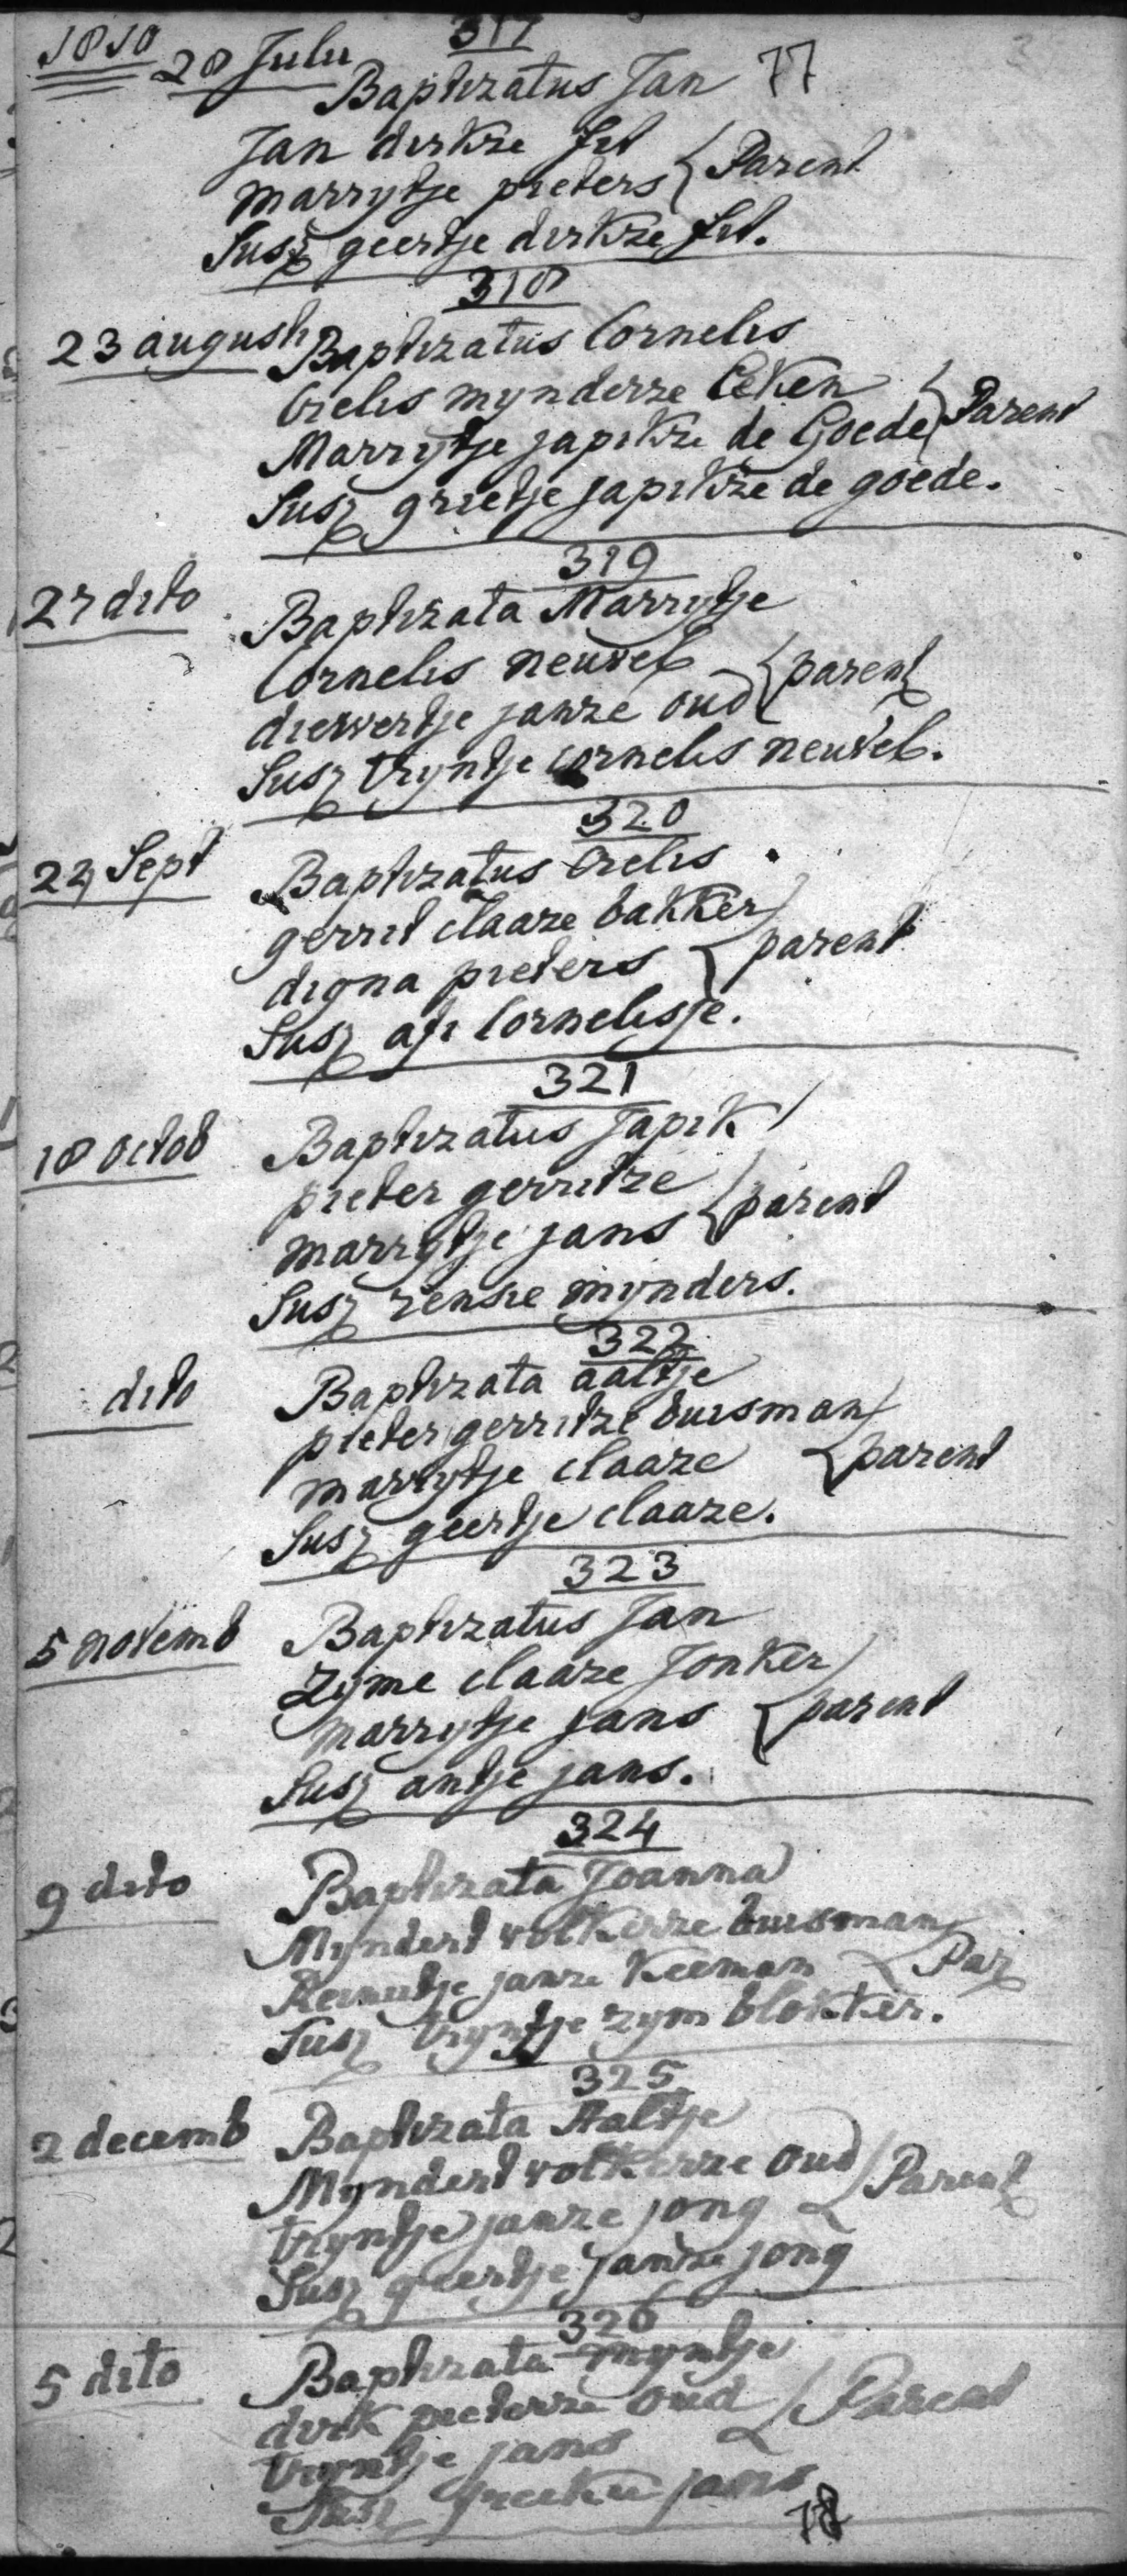 1810 317
28 Julii Baptizatus Jan 77
Jan dirkze fit
marrytje pieters Parent
Susz geertje dirkze fit.
318
23 augusti Baptizatus Cornelis
Crelis mynderze Eeken
Marrytje japikze de Goede Parent
Susz grietje japikze de goede.
319
27 dito Baptizata Marrytje
Cornelis neuvel
diewertje janze oud parent
Susz tryntje cornelis neuvel.
320
24 Sept Baptizatus Crelis
gerrit claaze bakker
digna pieters parent
Susz afi Cornelisje.
321
18 octob Baptizatus Japik
pieter gerritze
marrytje jans parent
Susz zensie mynders.
322
dito Baptizata aaltje
pieter gerritze buisman
marrytje claaze parent
Susz geertje claaze.
323
5 novemb Baptizatus Jan
zyme claaze Jonker
marrytje jans parent
Susz antje jans.
324
9 dito Baptizata Joanna
Myndert volkerze buisman
Reinutje janze Keeman Par
Susz tryntje zym blokker.
325
2 decemb Baptizata Aaltje
Myndert volkerze oud
tryntje janze jong Parent
Susz geertje janze jong
326
5 dito Baptizata myntje
dirk pieterze oud
tryntje jans Parent
Susz jans
78